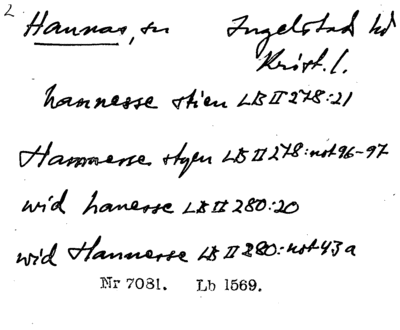 2
Hannas, sn Ingelstad hd
Krist. l.
hannesse stien LB II 278:21
Hannnesse styen LB II 278:not 96-97
wid hanesse LB II 280:20
wid Hannesse LB II 280:not 43a
Nr 7081. Lb 1569.